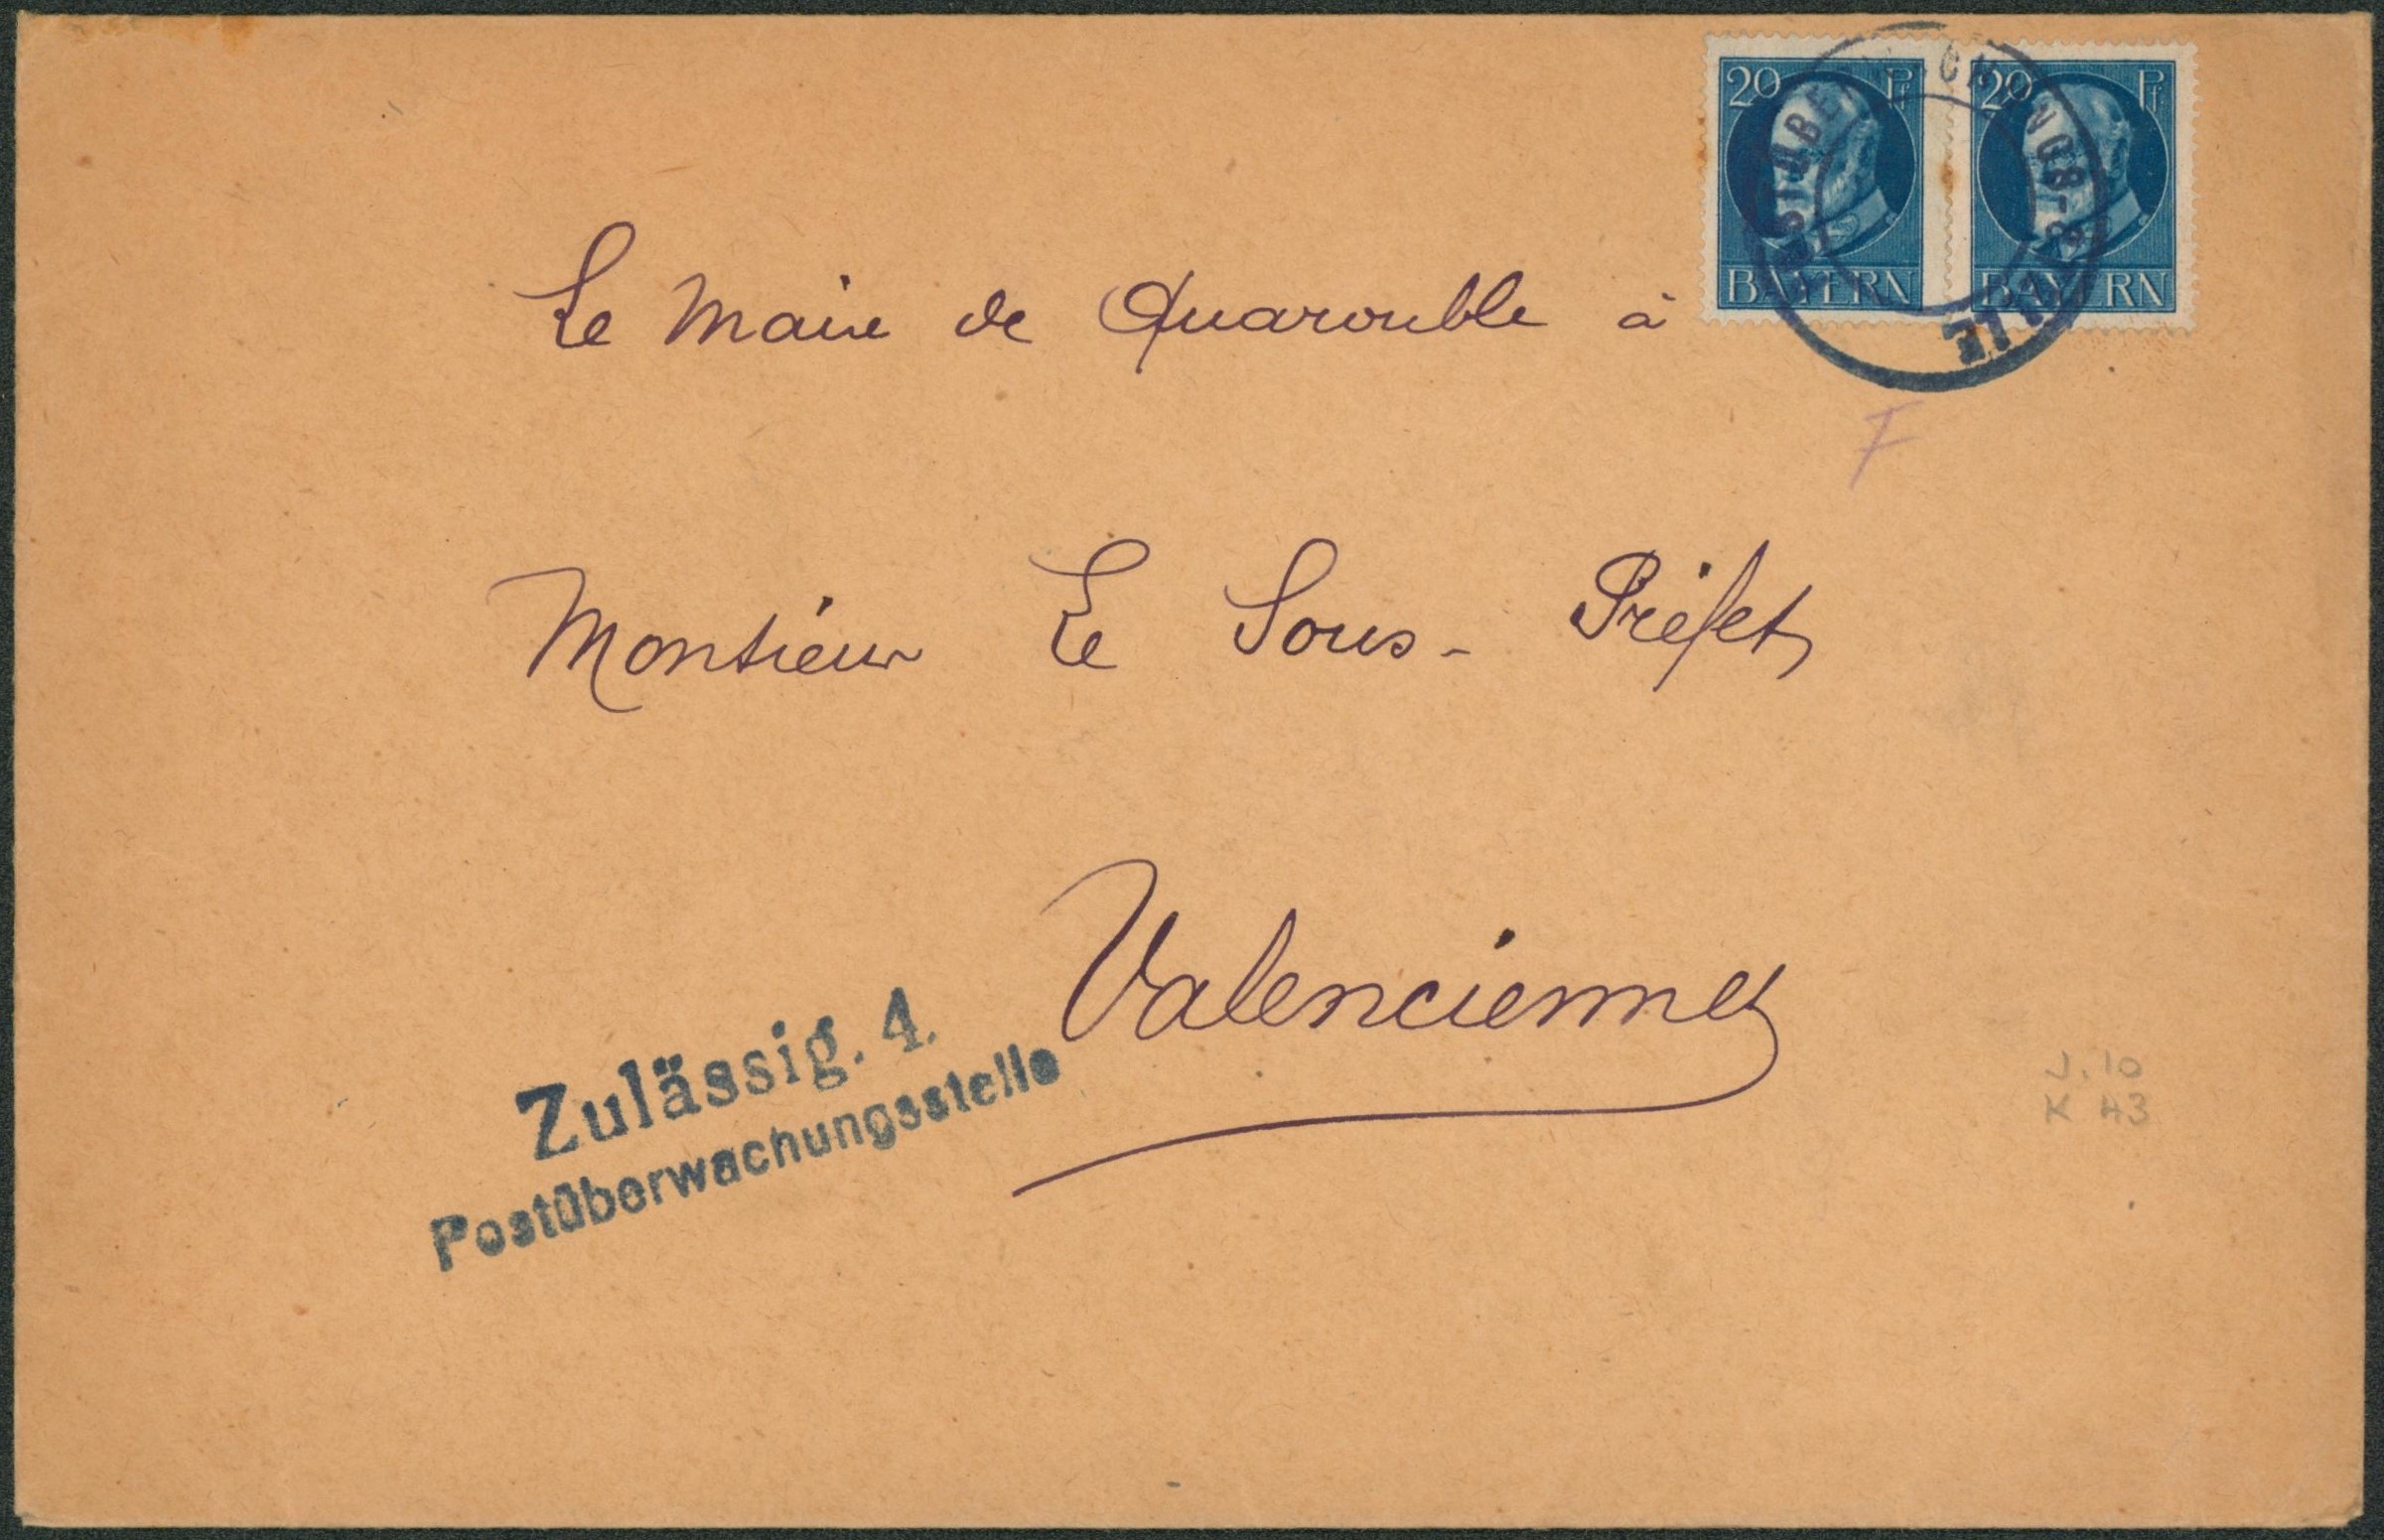 20 Pf
BAYERN
20 Pf
BAYERN
Le Maire de Quarouble à
F
Monsieur Le Sous - Préfet
Valenciennes
Zulässig. 4.
Postüberwachungsstelle
J. 10
K 43